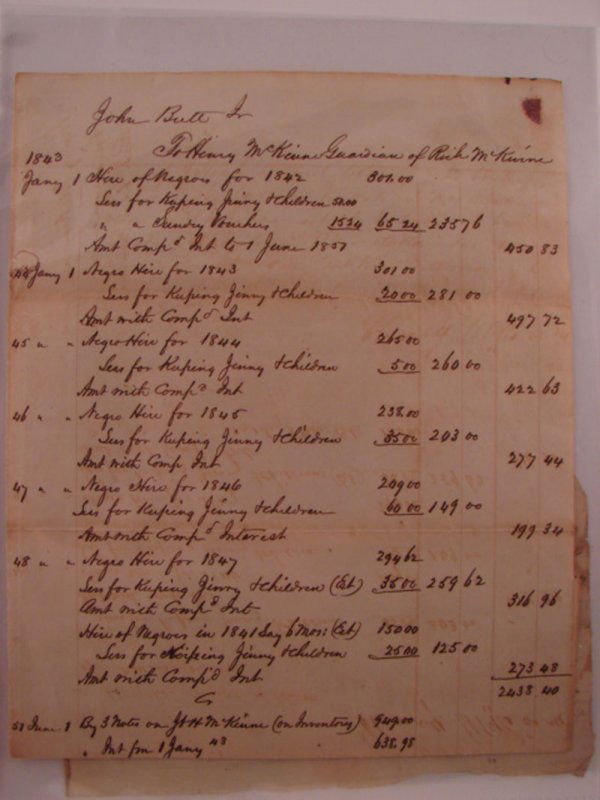 John Butt Jr
To Henry McKinne Guardian of Rich McKinne
1843
Jany 1 Hire of Negros for 1842 301.00
Less for Kuping Jinny & Children 50.00
" " Sundry Vouchers 1524 65.24 235 76
Amt Compd Int to 1 June 1851 450 83
44 Jany 1 Negro Hire for 1843 301 00
Less for Kuping Jinny & Children 20 00 281 00
Amt with Compd Int 497 72
45 " " Negro Hire for 1844 265 00
Less for Kuping Jinny & Children 5 00 260 00
Amt with Compd Int 422 63
46 " " Negro Hire for 1845 238.00
Less for Kuping Jinny & Children 35 00 203 00
Amt with Comp Int 277 44
47 " " Negro Hire for 1846 209 00
Less for Kuping Jinny & Children 60 00 149 00
Amt with Compd Interest 199 34
48 " " Negro Hire for 1847 294 62
Less for Kuping Jinny & Children (Est) 35 00 259 62
Amt with Compd Int 316 96
Hire of Negros in 1841 Say 6 Mos: (Est) 150 00
Less for Keiping Jinny & Children 25 00 125.00
Amt with Compd Int 273 48
2438 40
Cr
51 June 1 By 3 Notes on Jt H McKinne (on Inventory) 949.00
" Int fm 1 Jany 43 638.95